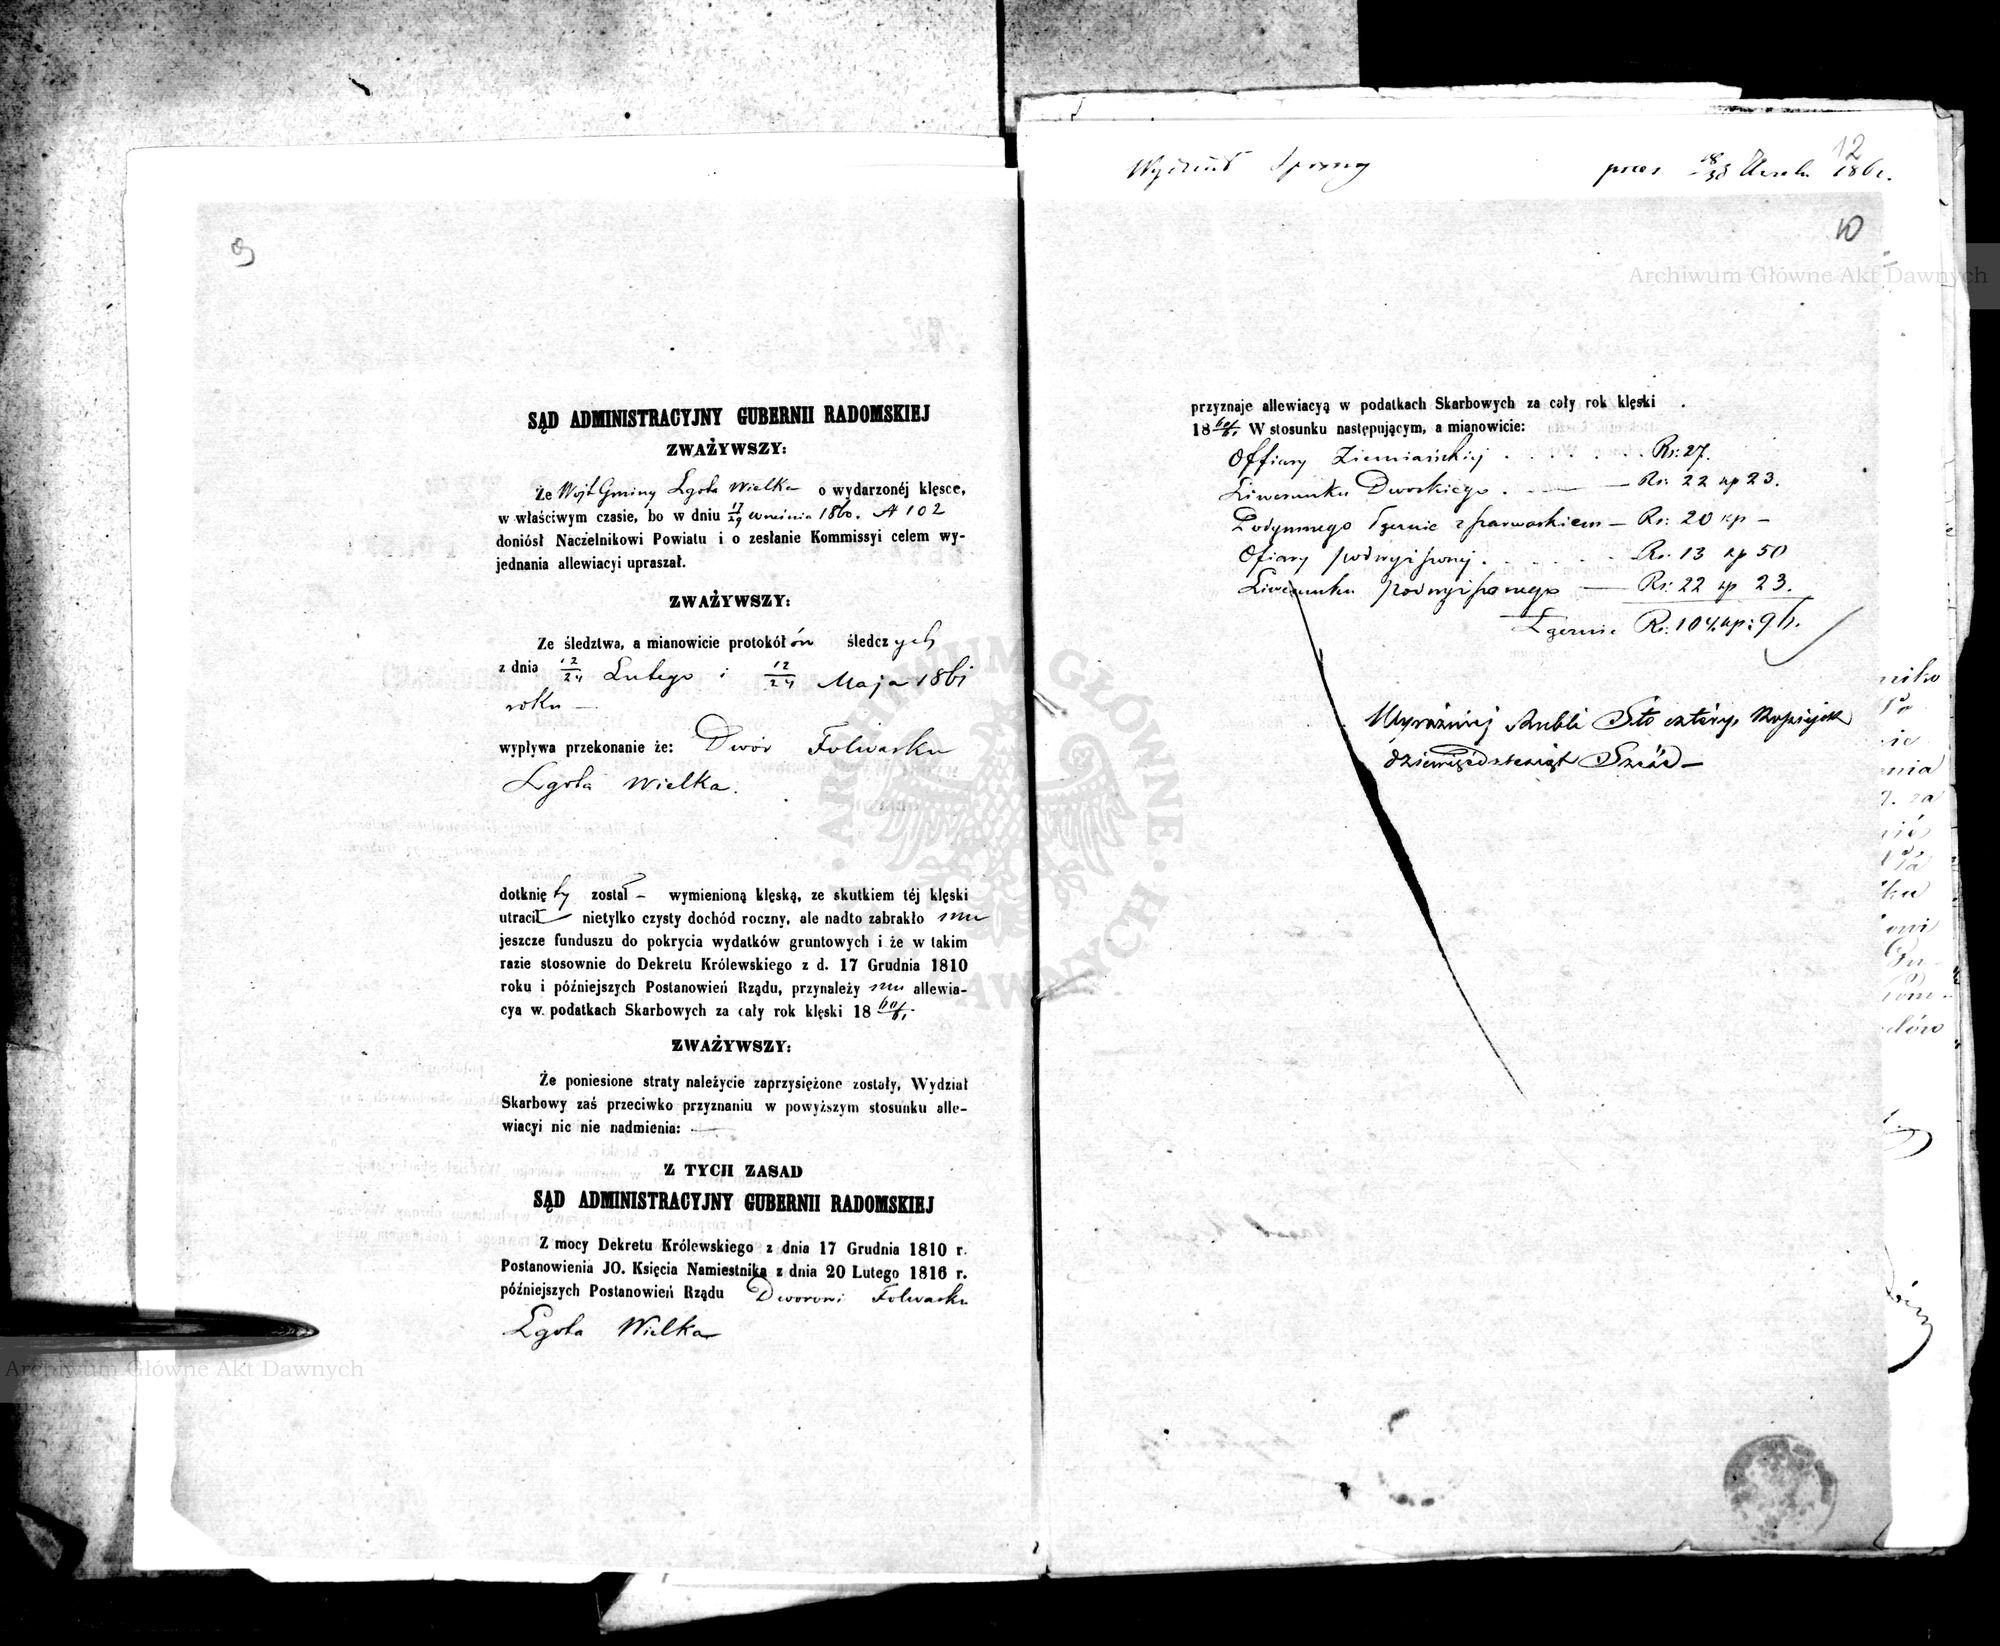 9
SĄD ADMINISTRACYJNY GUBERNII RADOMSKIEJ
ZWAŻYWSZY:
Że Wójt Gminy Lgota Wielka o wydarzonéj klęsce,
w właściwym czasie, bo w dniu 17/29 Września 1860. N 102
doniósł Naczelnikowi Powiatu i o zesłanie Kommissyi celem wy-
jednania allewiacyi upraszał.
ZWAŻYWSZY:
Ze śledztwa, a mianowicie protokółów śledczych
z dnia 12/24 Lutego i 12/24 Maja 1861
roku —
wypływa przekonanie że: Dwór Folwarku
Lgota Wielka.
dotknięty został — wymienioną klęską, ze skutkiem téj klęski
utracił nietylko czysty dochód roczny, ale nadto zabrakło mu
jeszcze funduszu do pokrycia wydatków gruntowych i że w takim
razie stosownie do Dekretu Królewskiego z d. 17 Grudnia 1810
roku i późniejszych Postanowień Rządu, przynależy mu allewia-
cya w podatkach Skarbowych za cały rok klęski 18 60/61
ZWAŻYWSZY:
Że poniesione straty należycie zaprzysiężone zostały, Wydział
Skarbowy zaś przeciwko przyznaniu w powyższym stosunku alle-
wiacyi nic nie nadmienia: —
Z TYCH ZASAD
SĄD ADMINISTRACYJNY GUBERNII RADOMSKIEJ
Z mocy Dekretu Królewskiego z dnia 17 Grudnia 1810 r.
Postanowienia JO. Księcia Namiestnika z dnia 20 Lutego 1816 r.
późniejszych Postanowień Rządu Dworowi Folwarku
Lgota Wielka
Archiwum Główne Akt Dawnych
12
Wydział Sporny
10
Archiwum Główne Akt Dawnych
przyznaje allewiacyą w podatkach Skarbowych za cały rok klęski
18 60/61 W stosunku następującym, a mianowicie:
Offiary Ziemiańskiej . . . . . Rs: 27.
Liwerunku Dworskiego . — — Rs: 22 kp 23.
Podymnego łącznie z — Rs: 20 kp —
Ofiary podwyższonej . . . . . Rs. 13 kp 50
Liwerunku podwyższonego — Rs: 22 kp 23.
Łącznie Rs: 104. kp: 96.
Wyraźniej Rubli Sto cztéry, Kopiejek
dziewięćdziesiąt Sześć —
ARCHIWUM GŁÓWNE AKT DAWNYCH